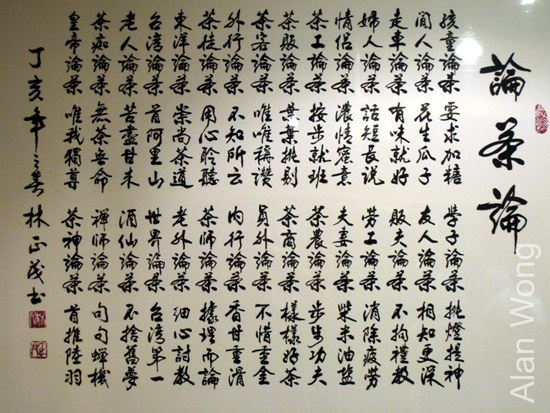 論茶論
孩童論茶 要求加糖 學子論茶 挑燈提神
閒人論茶 花生瓜子 友人論茶 相知更深
走車論茶 有味就好 販夫論茶 不拘禮數
婦人論茶 話短長說 勞工論茶 消除疲勞
情侶論茶 濃情蜜意 夫妻論茶 柴米油鹽
茶工論茶 按步就班 茶農論茶 步步功夫
茶販論茶 葉葉挑剔 茶商論茶 樣樣好茶
茶客論茶 唯唯稱讚 員外論茶 不惜重金
外行論茶 不知所云 內行論茶 香甘重滑
茶徒論茶 用心聆聽 茶師論茶 據理而論
東洋論茶 崇尚茶道 老外論茶 細心討教
台灣論茶 首阿里山 世界論茶 台灣第一
老人論茶 苦盡甘來 酒仙論茶 不捨舊夢
茶痴論茶 無茶命 禪師論茶 句句蟬機
皇帝論茶 唯我獨尊 茶神論茶 首推陸羽
丁亥年之 林正茂書
Alan Wong